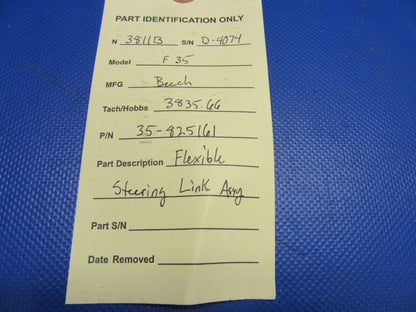 PART IDENTIFICATION ONLY
N 3811B S/N D-4074
Model F 35
MFG Beech
Tach/Hobbs 3835.66
P/N 35-825161
Part Description Flexible
Steering Link Assy
Part S/N
Date Removed